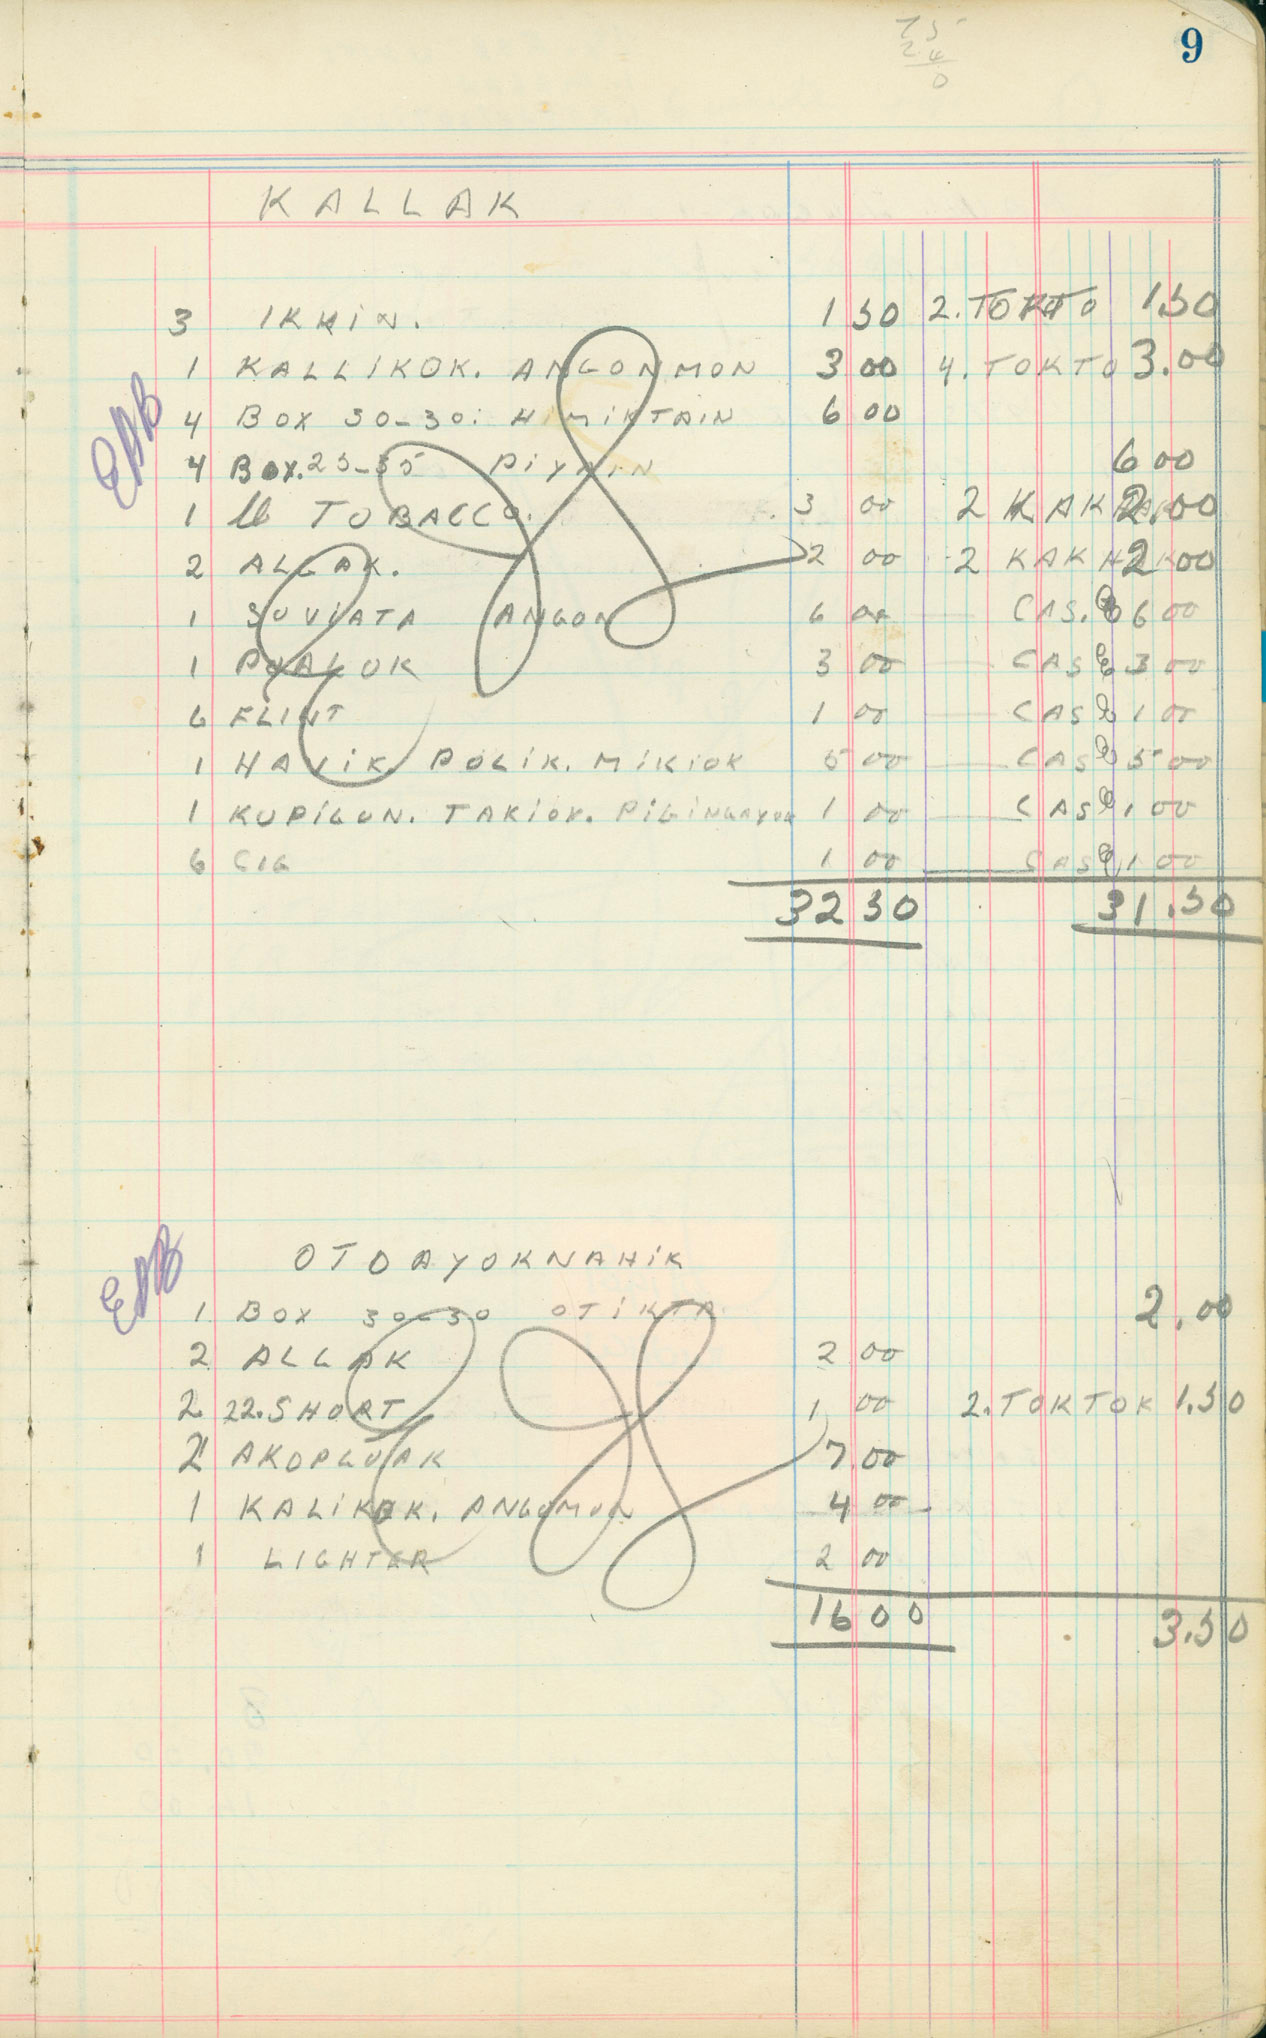 9
75
24
0
KALLAK
3 IKHIN. 1 50 2. TOKTO 1.50
1 KALLIKOK. ANGONMON 3 00 4. TOKTO 3.00
EAB
4 BOX 30-30: HIMIKTAIN 6 00
4 BOX. 25-35 PIYKIN 6 00
1 lb TOBACCO. 3 00 2 KAK 2.00
2 ALLAK. 2 00 2 KAK 2 00
1 SUVIATA ANGON 6 00 CAS. 6 00
1 PUALUK 3 00 CAS 3 00
6 FLINT 1 00 CAS 1 00
1 HAVIK POLIK. MIKIOK 5 00 CAS 5 00
1 KUPIGUN. TAKIOK. 1 00 CAS 1 00
6 CIG 1 00 CAS 1 00
32 50 31.50
EAB
OTOAYOKNAHIK
1 BOX 30-30 OTIKTA 2.00
2 ALLAK 2 00
2 22. SHORT 1 00 2. TOKTOK 1.50
2 AKOPLUAK 7 00
1 KALIKOK. ANGUMUN 4 00
1 LIGHTER 2 00
16 00 3.50